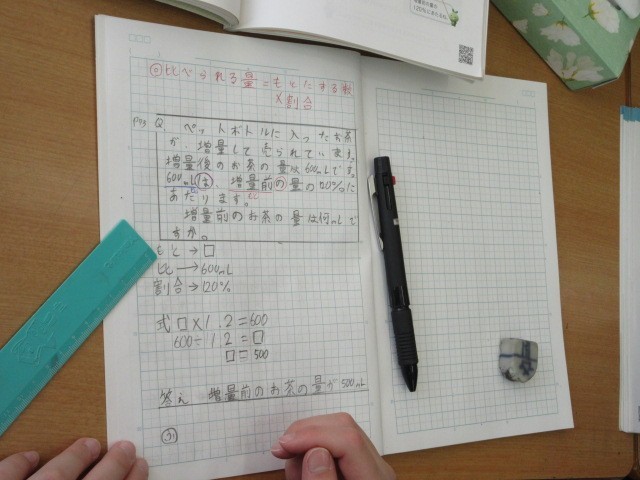 ◎比べられる量=もとにする数
×割合
P93 Q ペットボトルに入ったお茶
が、増量して売られています。
増量後のお茶の量は600mLです。
600mLは、増量前の量の120%に
あたります。
増量前のお茶の量は何mLで
すか。
もと→□
比→600mL
割合→120%
式 □×1.2=600
600÷1.2=□
□=500
答え 増量前のお茶の量が500mL